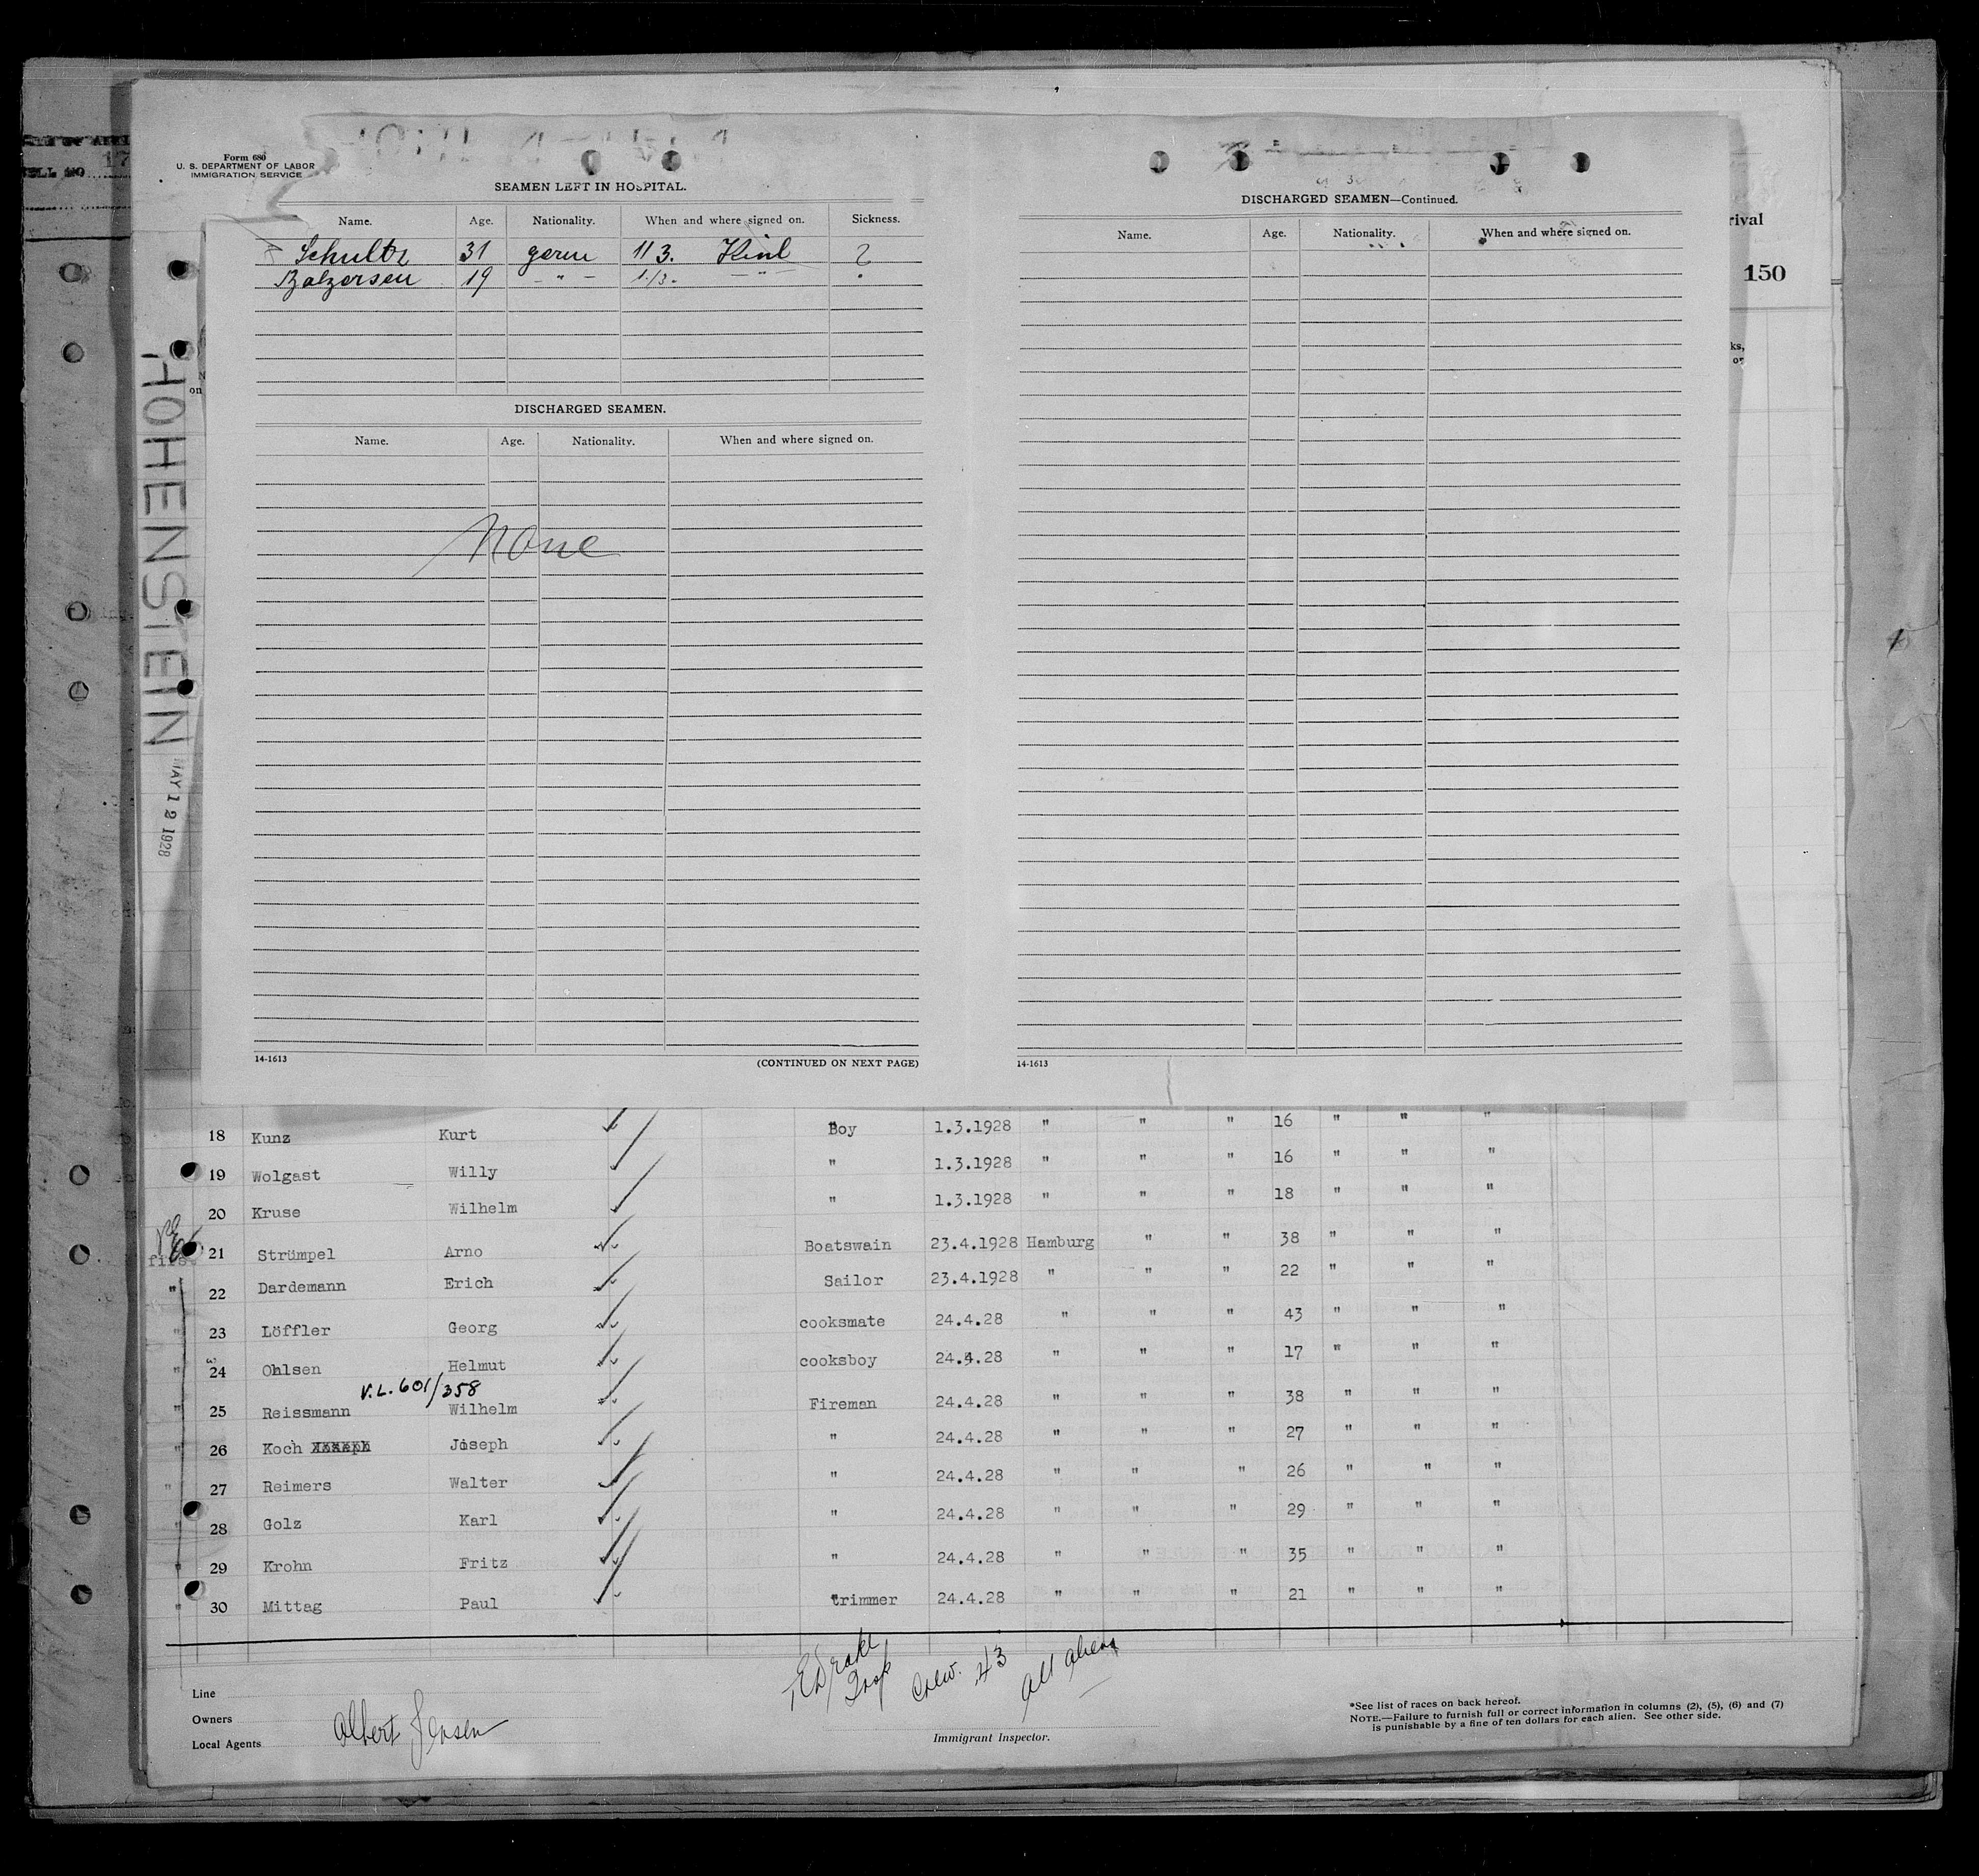 Form 680
U. S. DEPARTMENT OF LABOR
IMMIGRATION SERVICE
SEAMEN LEFT IN HOSPITAL.
Name. Age. Nationality. When and where signed on. Sickness.
Schultz 31 germ 11 3. ?
19 - " - 1/3. - " -
DISCHARGED SEAMEN.
Name. Age. Nationality. When and where signed on.
None
14-1613 (CONTINUED ON NEXT PAGE)
DISCHARGED SEAMEN—Continued.
Name. Age. Nationality. When and where signed on.
14-1613
rival
150
ks,
or
on
17
HOHENSTEIN
MAY 12 1928
18 Kunz Kurt Boy 1.3.1928 " " " 16 " " "
19 Wolgast Willy " 1.3.1928 " " " 16 " " "
20 Kruse Wilhelm " 1.3.1928 " " " 18 " " "
first 21 Strümpel Arno Boatswain 23.4.1928 Hamburg " " 38 " " "
" 22 Dardemann Erich Sailor 23.4.1928 " " " 22 " " "
" 23 Löffler Georg cooksmate 24.4.28 " " " 43 " " "
" 24 Ohlsen Helmut cooksboy 24.4.28 " " " 17 " " "
V.L. 601/358
" 25 Reissmann Wilhelm Fireman 24.4.28 " " " 38 " " "
" 26 Koch Joseph " 24.4.28 " " " 27 " " "
" 27 Reimers Walter " 24.4.28 " " " 26 " " "
" 28 Golz Karl " 24.4.28 " " " 29 " " "
" 29 Krohn Fritz " 24.4.28 " " " 35 " " "
" 30 Mittag Paul trimmer 24.4.28 " " " 21 " " "
Crew. 43 All aliens
Line
Owners
Local Agents Albert Jensen
Immigrant Inspector.
*See list of races on back hereof.
NOTE.—Failure to furnish full or correct information in columns (2), (5), (6) and (7)
is punishable by a fine of ten dollars for each alien. See other side.